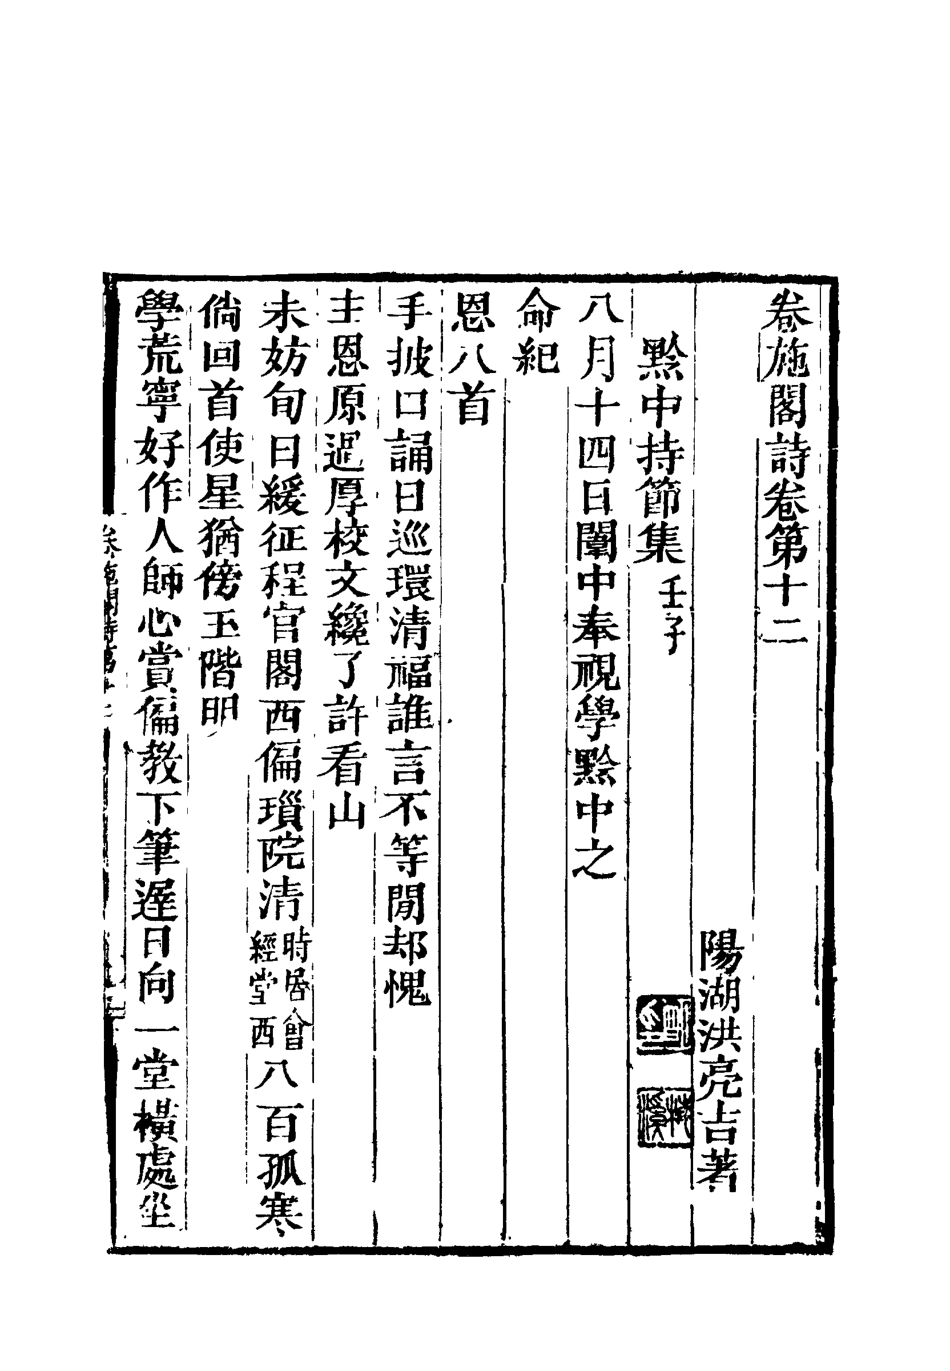 卷施閣詩卷第十二
陽湖洪亮吉著
黔中持節集 壬子
八月十四日闈中奉視學黔中之
命紀
恩八首
手披口誦日巡環清福誰言不等閒却愧
主恩原逈厚校文纔了許看山
未妨旬日緩征程官閣西偏瑣院清時居會經堂西八百孤寒
倘回首使星猶傍玉階明
學荒寧好作人師心賞偏教下筆遲日向一堂橫處坐
卷施閣詩第十二